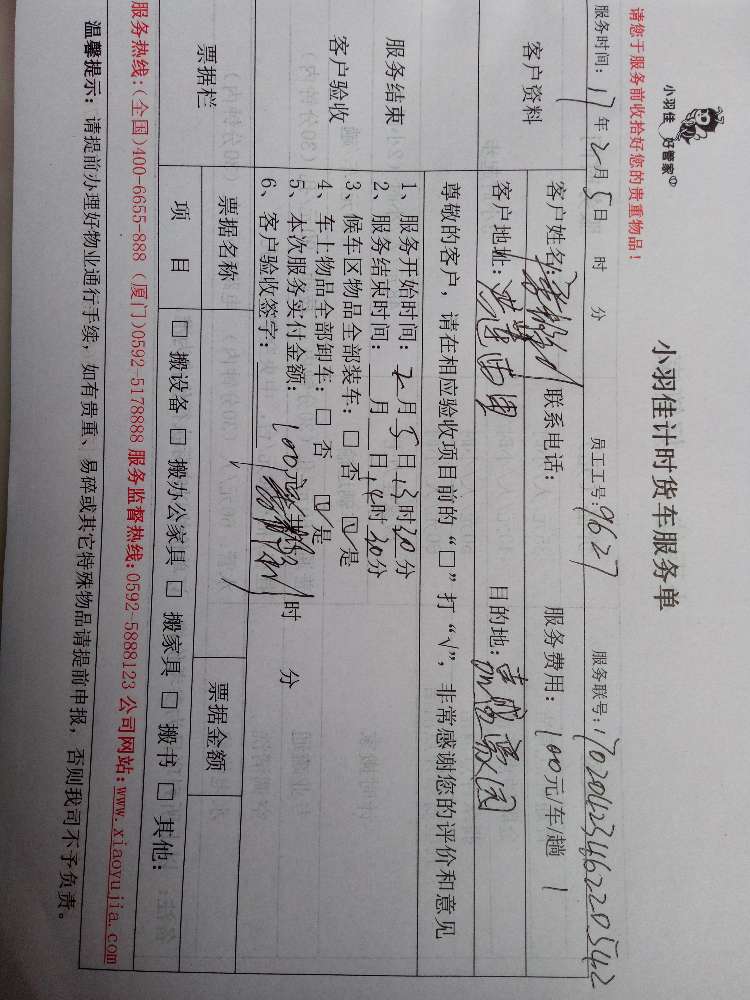 小羽佳 好管家
小羽佳计时货车服务单
请您于服务前收拾好您的贵重物品！
服务时间：17年2月5日 时 分 员工工号：9627 服务联号：1702042346220542
客户资料
客户姓名： 联系电话： 服务费用：100元/车/趟 1
客户地址：莲西里 目的地：嘉盛豪园
服务结束
客户验收
尊敬的客户，请在相应验收项目前的“□”打“√”，非常感谢您的评价和意见
1、服务开始时间：2月5日13时20分
2、服务结束时间：__月__日14时30分
3、候车区物品全部装车：□ 否 ☑ 是
4、车上物品全部卸车：□ 否 ☑ 是
5、本次服务实付金额：100元
6、客户验收签字： 时 分
票据栏
票据名称 票据金额
项 目 □ 搬设备 □ 搬办公家具 □ 搬家具 □ 搬书 □ 其他：
服务热线：(全国)400-6655-888 (厦门)0592-5178888 服务监督热线:0592-5888123 公司网站:www.xiaoyujia.com
温馨提示：请提前办理好物业通行手续，如有贵重、易碎或其它特殊物品请提前申报，否则我司不予负责。